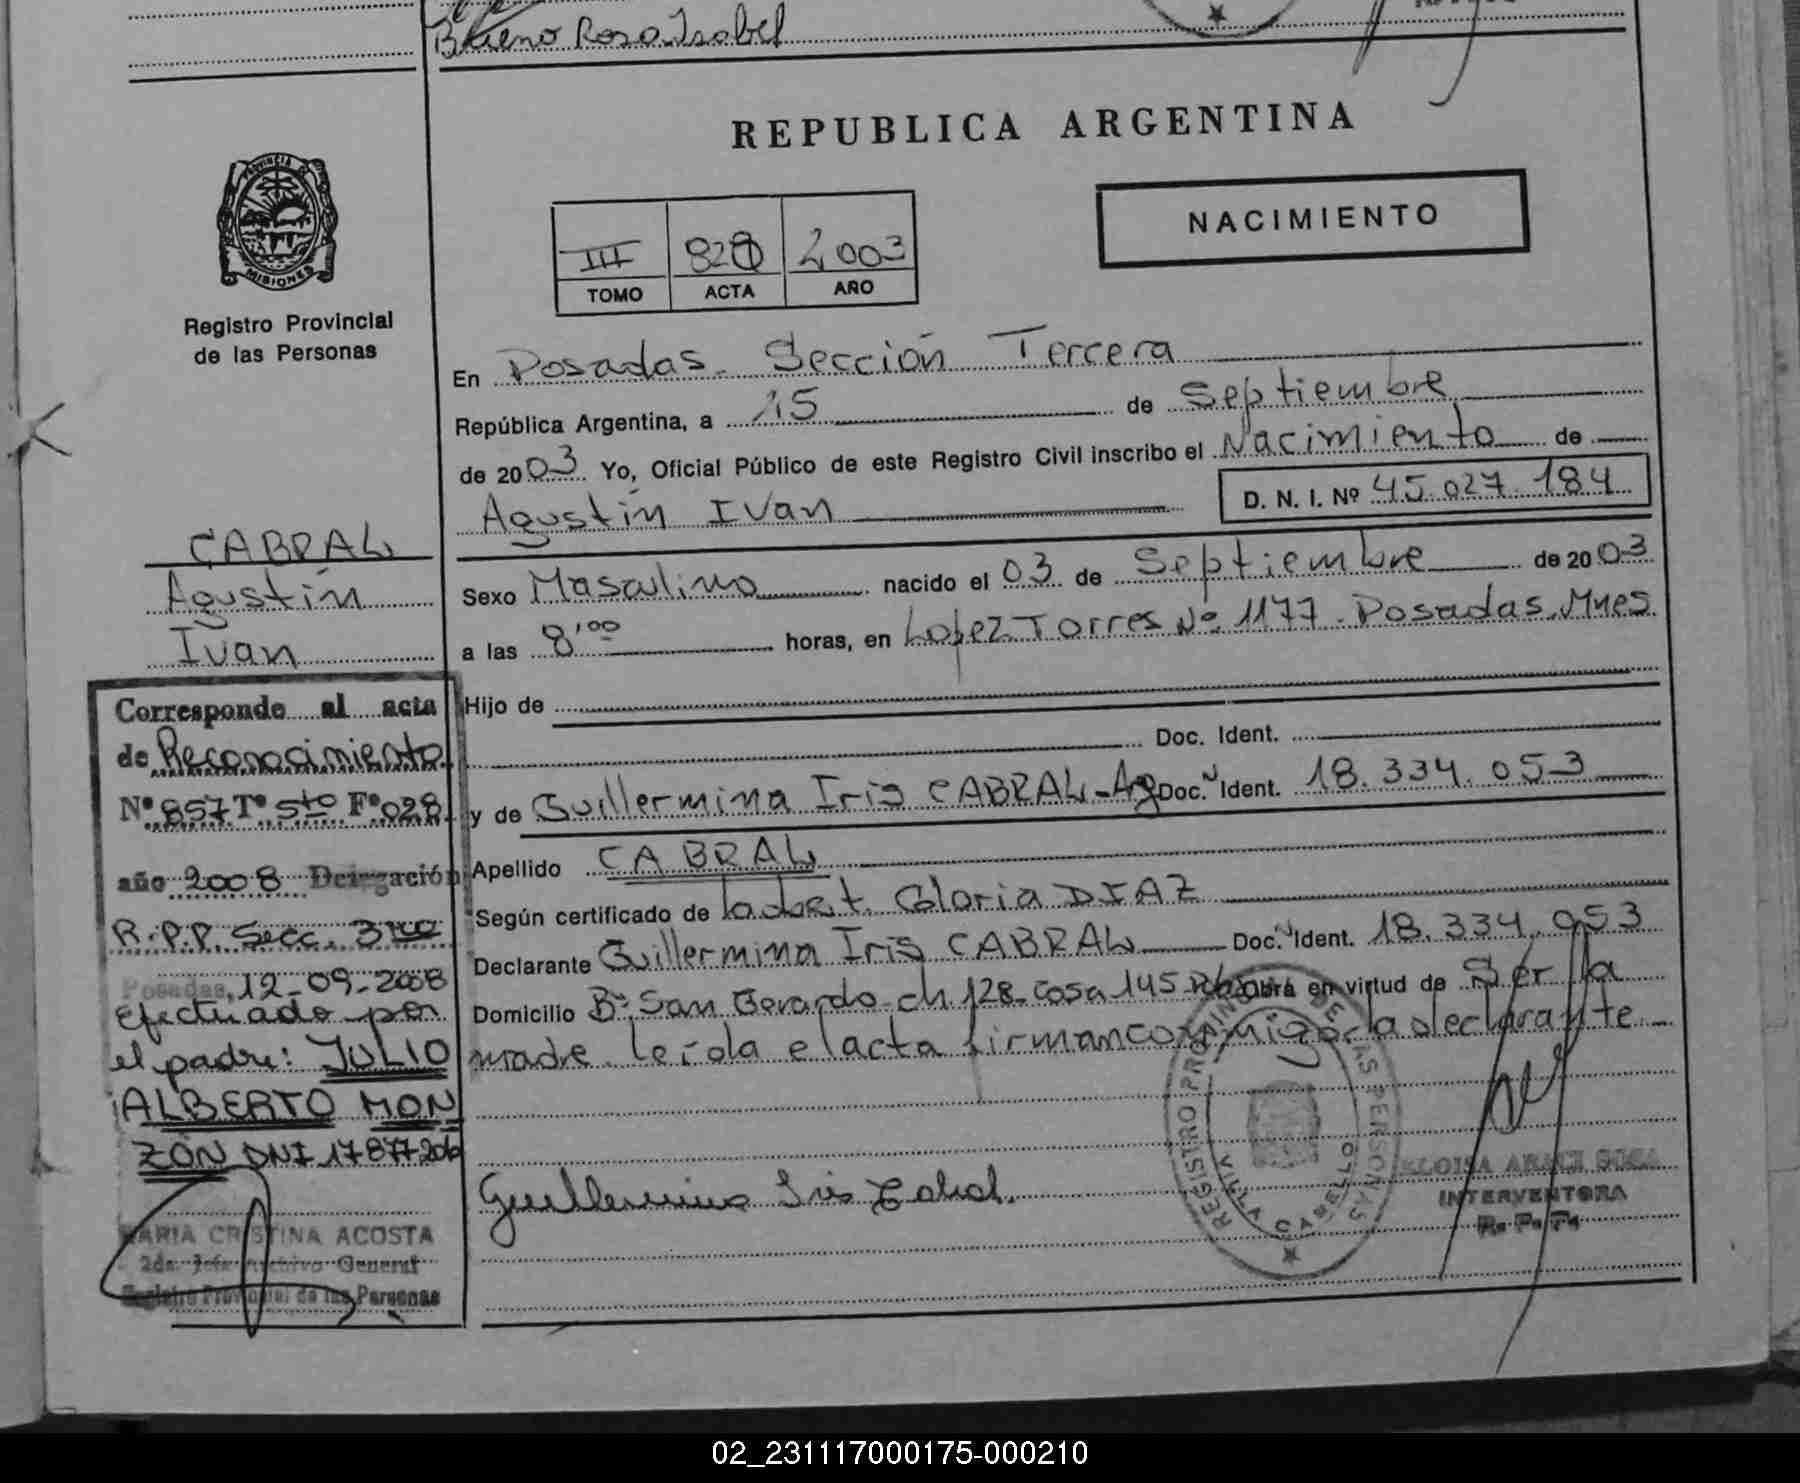 Bueno Rosa Isabel
REPUBLICA ARGENTINA
PROVINCIA DE
MISIONES
Registro Provincial
de las Personas
NACIMIENTO
III 828 2003
TOMO ACTA AÑO
En Posadas. Sección Tercera
República Argentina, a 15 de Septiembre
de 2003 Yo, Oficial Público de este Registro Civil inscribo el Nacimiento de
Agustín Ivan D. N. I. Nº 45.027.184
CABRAL
Agustín
Ivan
Sexo Masculino nacido el 03 de Septiembre de 2003
a las 8'00 horas, en Lopez Torres Nº 1177. Posadas. Mnes
Hijo de
Doc. Ident.
y de Guillermina Iris CABRAL-Ag Doc. Ident. 18.334.053
Apellido CABRAL
Según certificado de la obst. Gloria DIAZ
Declarante Guillermina Iris CABRAL Doc. Ident. 18.334.053
Domicilio Bº San Gerardo ch 128-casa 145 Obra en virtud de Ser la
madre. leída el acta firman conmigo la declarante
Corresponde al acta
de Reconocimiento
Nº 857 Tº 5to Fº 028
año 2008 Delegación
R.P.P. Secc. 3ra
Posadas, 12-09-2008
Efectuado por
el padre: JULIO
ALBERTO MON
ZÓN DNI 17877206
MARIA CRISTINA ACOSTA
2da Jefe Archivo General
Registro Provincial de las Personas
Guillermina Iris Cabral.
REGISTRO PROVINCIAL DE LAS PERSONAS
VILLA CABELLO
ELOISA ARACI SOSA
INTERVENTORA
R. P. P.
02_231117000175-000210